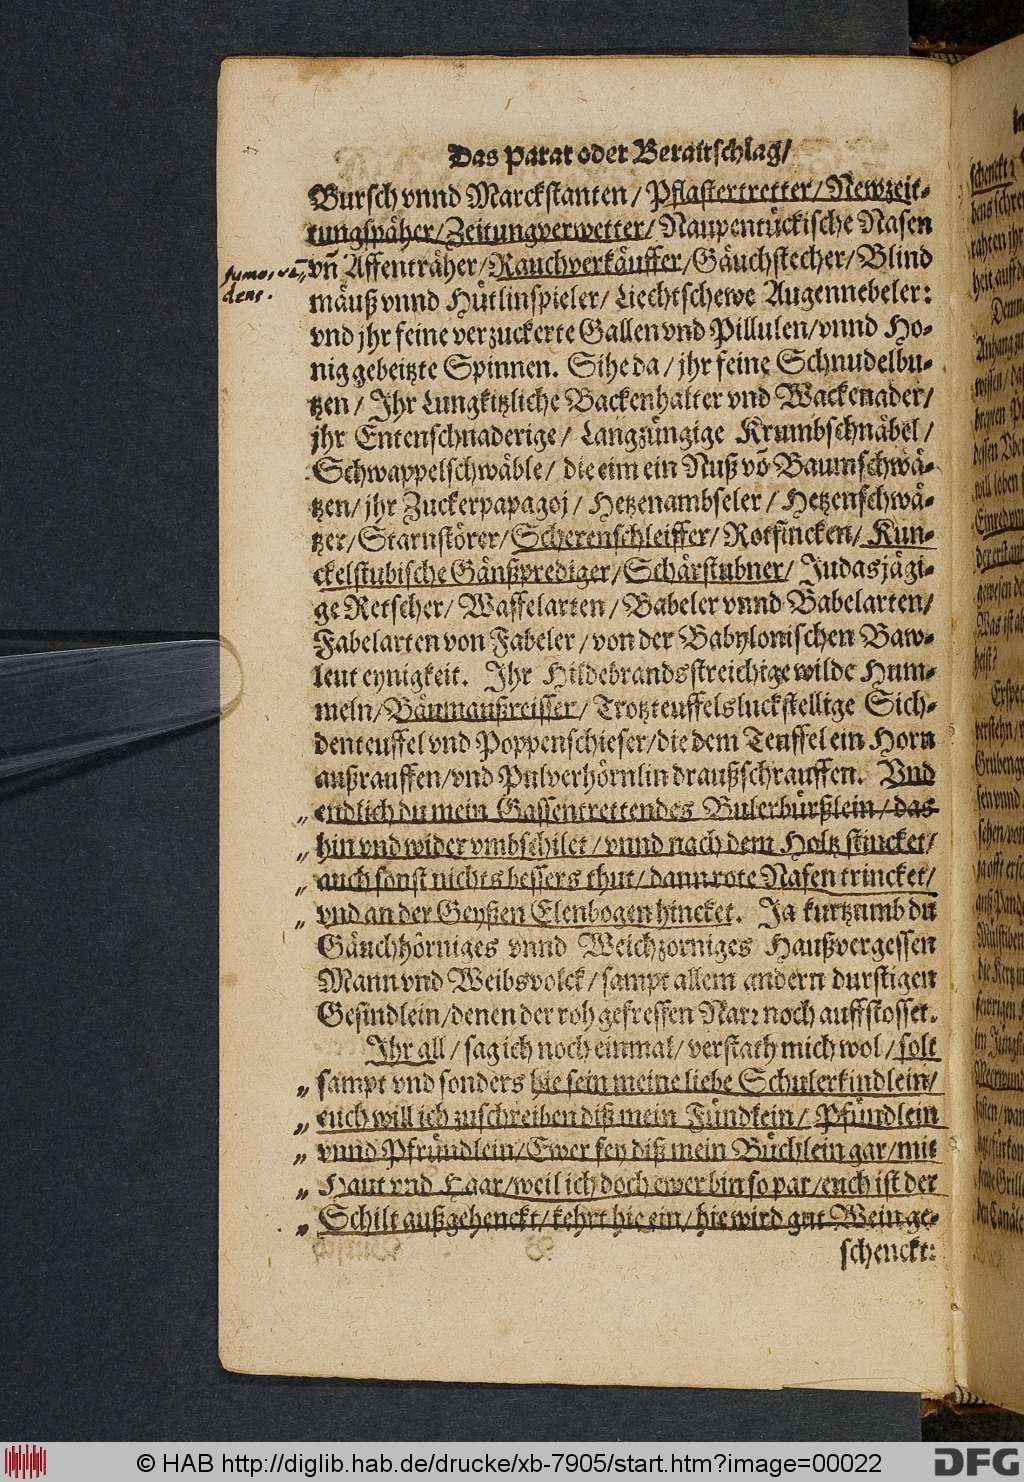 Das Parat oder Beraitschlag/
Bursch vnnd Marckstanten / Pflastertretter/ Newzeit-
tungspäher/ Zeitungverwetter/ Naupentückische Nasen
vñ Affenträher/ Rauchverkäuffer/ Gäuchstecher/ Blind
mäuß vnnd Hütlinspieler/ Liechtschewe Augennebeler:
vnd jhr feine verzuckerte Gallen vnd Pillulen/ vnnd Ho-
nig gebeitzte Spinnen. Sihe da / jhr feine Schnudelbu-
tzen / Ihr Lungkitzliche Backenhalter vnd Wackenader/
jhr Entenschnaderige/ Langzüngige Krumbschnäbel /
Schwappelschwäble/ die eim ein Nuß võ Baum schwä-
tzen/ jhr Zuckerpapagoj / Hetzenambseler / Hetzenschwä-
tzer/ Starnstörer/ Scherenschleiffer/ Rotfincken/ Kun-
ckelstubische Gänßprediger/ Schärstubner/ Judasjägi-
ge Retscher/ Waffelarten / Babeler vnnd Babelarten/
Fabelarten von Fabeler / von der Babylonischen Baw-
leut eynigkeit. Ihr Hildebrandsstreichige wilde Hum-
meln/ Bäumaußreisser/ Trotzteuffelsluckstellige Sich-
denteuffel vnd Poppenschieser/ die dem Teuffel ein Horn
außrauffen/ vnd Pulverhörnlin draußschrauffen. Vnd
„ endlich du mein Gassentrettendes Bulerbürßlein/ das
„ hin vnd wider vmbschilet / vnnd nach dem Holtz stincket/
„ auch sonst nichts bessers thut/ dann rote Nasen trincket/
„ vnd an der Geyßen Elenbogen hincket. Ja kurtzumb du
Gäuchhörniges vnnd Weichzorniges Haußvergessen
Mann vnd Weibsvolck/ sampt allem andern durstigen
Gesindlein/ denen der roh gefressen Narꝛ noch auffstosset.
Ihr all / sag ich noch einmal/ verstath mich wol/ solt
„ sampt vnd sonders hie sein meine liebe Schulerkindlein/
„ euch will ich zuschreiben diß mein Fündlein/ Pfündlein
„ vnnd Pfründlein/ Ewer sey diß mein Büchlein gar/ mit
„ Haut vnd Haar/ weil ich doch ewer bin so par/ euch ist der
„ Schilt außgehenckt/ kehrt hie ein/ hie wird gut Wein ge-
schenckt:
© HAB http://diglib.hab.de/drucke/xb-7905/start.htm?image=00022
DFG